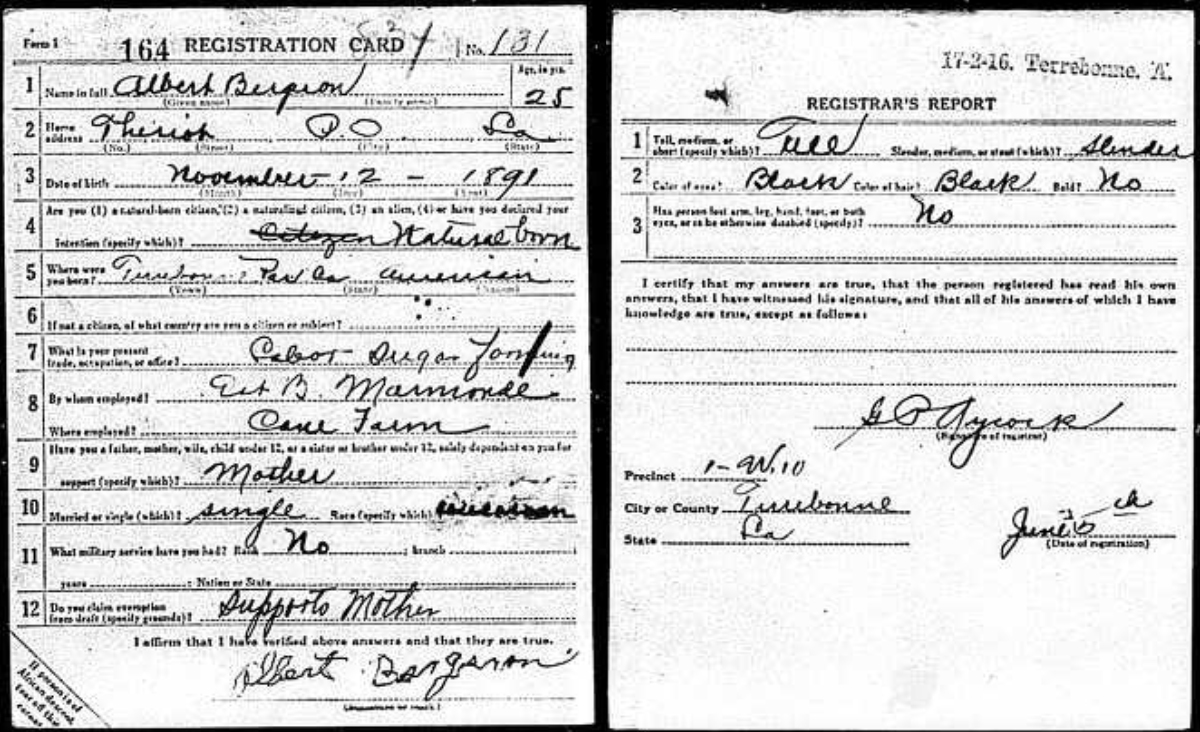 Form 1 164 REGISTRATION CARD No. 131
1 Name in full Albert Bergeron Age, in yrs. 25
(Given name) (Family name)
2 Home address Theriot P.O. La
(No.) (Street) (City) (State)
3 Date of birth November 12 - 1891
(Month) (Day) (Year)
4 Are you (1) a natural-born citizen, (2) a naturalized citizen, (3) an alien, (4) or have you declared your
intention (specify which)? Citizen Natural born
5 Where were you born? Terrebonne Par La american
(Town) (State) (Nation)
6 If not a citizen, of what country are you a citizen or subject?
7 What is your present trade, occupation, or office? Labor Sugar Farming
8 By whom employed? Est B. Marmonde
Where employed? Cane Farm
9 Have you a father, mother, wife, child under 12, or a sister or brother under 12, solely dependent on you for
support (specify which)? Mother
10 Married or single (which)? single Race (specify which)
11 What military service have you had? Rank No ; branch
years ; Nation or State
12 Do you claim exemption from draft (specify grounds)? Supports Mother
I affirm that I have verified above answers and that they are true.
Albert Bergeron
(Signature or mark)
If person is of
African descent,
tear off this
corner
17-2-16. Terrebonne. A.
REGISTRAR'S REPORT
1 Tall, medium, or short (specify which)? Tall Slender, medium, or stout (which)? Slender
2 Color of eyes? Black Color of hair? Black Bald? No
3 Has person lost arm, leg, hand, foot, or both eyes, or is he otherwise disabled (specify)? No
I certify that my answers are true, that the person registered has read his own
answers, that I have witnessed his signature, and that all of his answers of which I have
knowledge are true, except as follows:
G P Aycock
(Signature of registrar)
Precinct 1-W.10
City or County Terrebonne
State La
June 5th
(Date of registration)